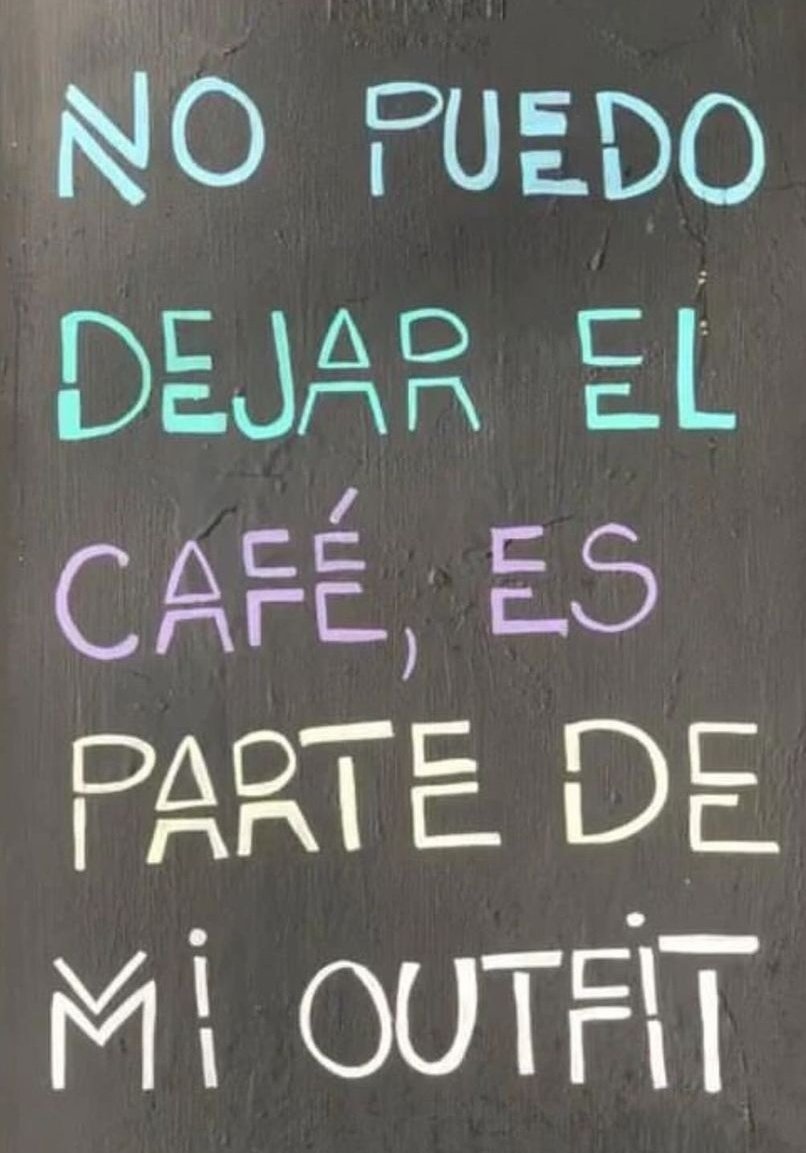 NO PUEDO
DEJAR EL
CAFÉ, ES
PARTE DE
Mi OUTFiT